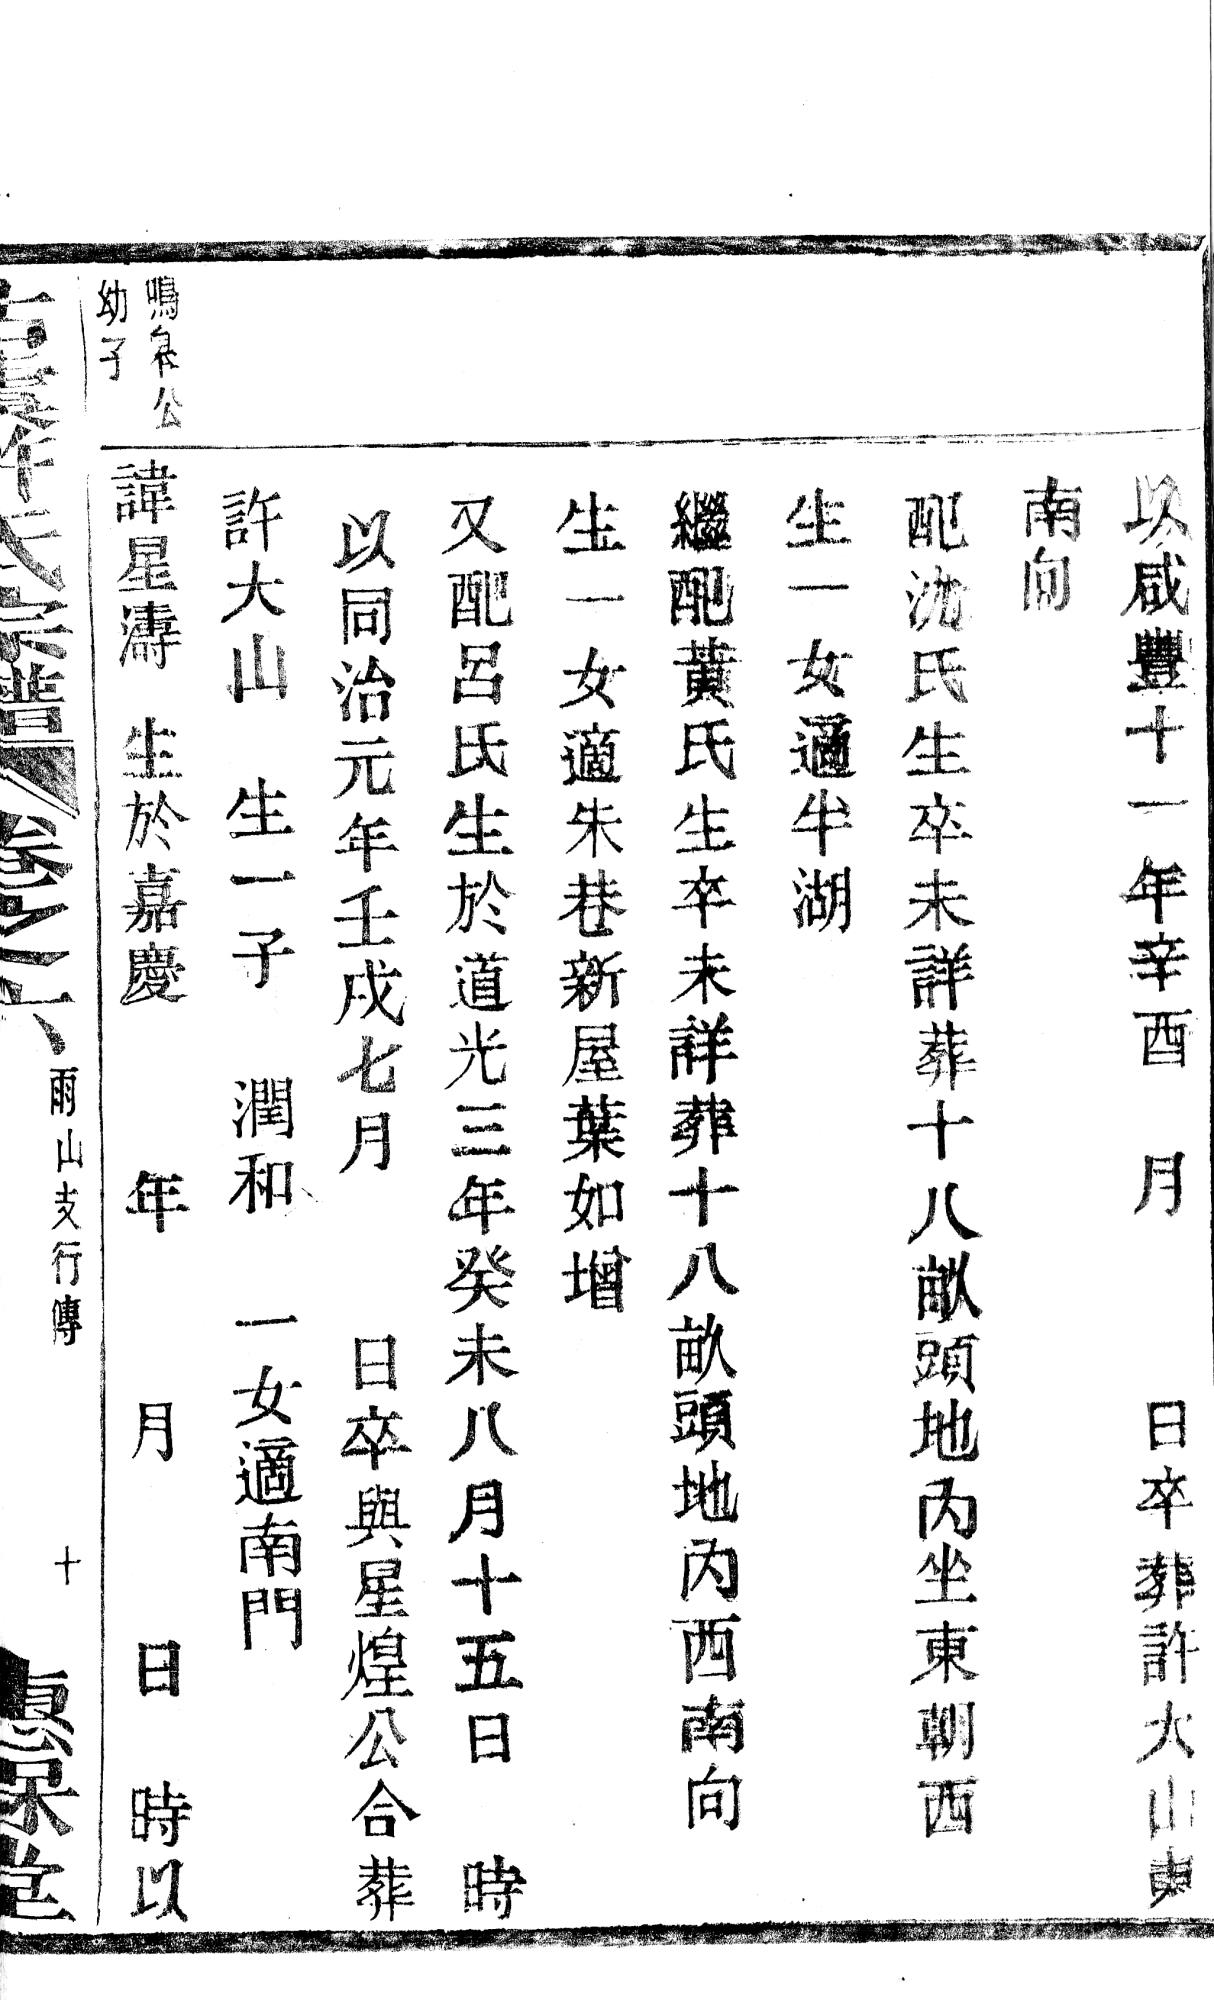 以咸豐十一年辛酉　月　　日卒葬許大山東
南向
配沈氏生卒未詳葬十八畝頭地內坐東朝西
生一女適半湖
繼配黃氏生卒未詳葬十八畝頭地內西南向
生一女適朱巷新屋葉如增
又配呂氏生於道光三年癸未八月十五日　時
以同治元年壬戌七月　　日卒與星煌公合葬
許大山　生一子　潤和　一女適南門
鳴皋公
幼子
諱星濤　生於嘉慶　　年　　月　　日　時以
許氏宗譜　卷之六　雨山支行傳　十